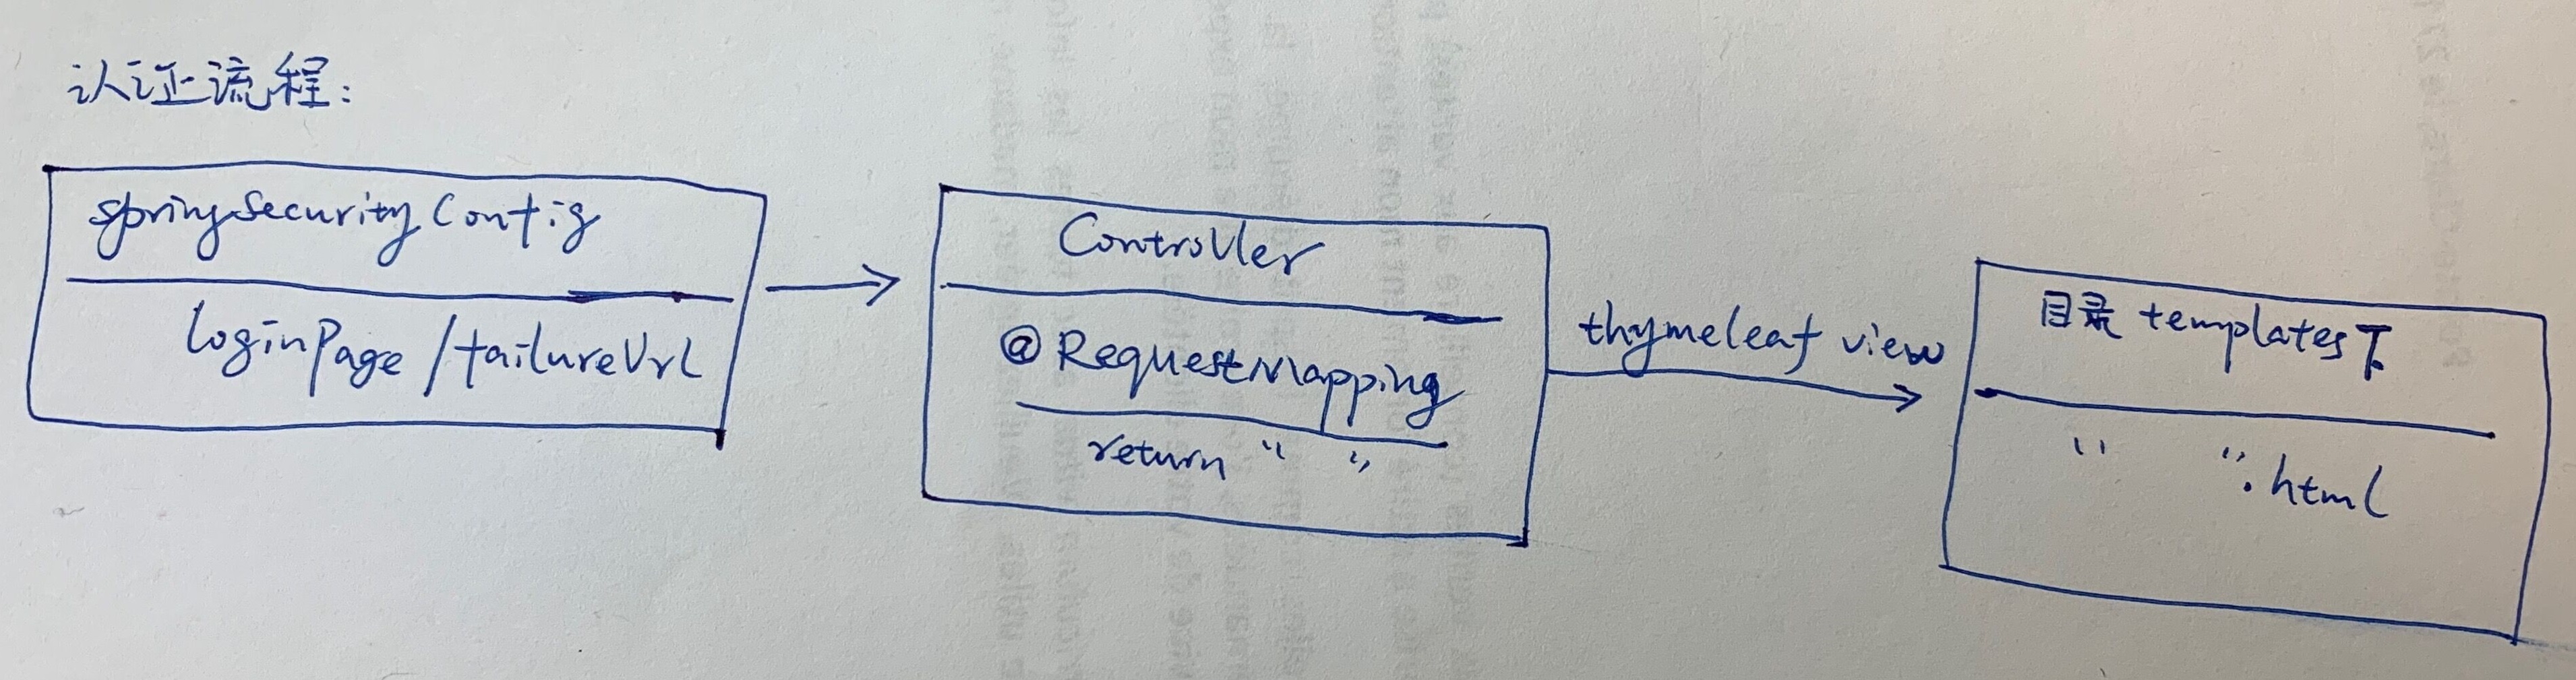 认证流程:
SpringSecurityConfig
loginPage/failureUrl
Controller
@RequestMapping
return " "
thymeleaf view
目录 templates下
" ".html